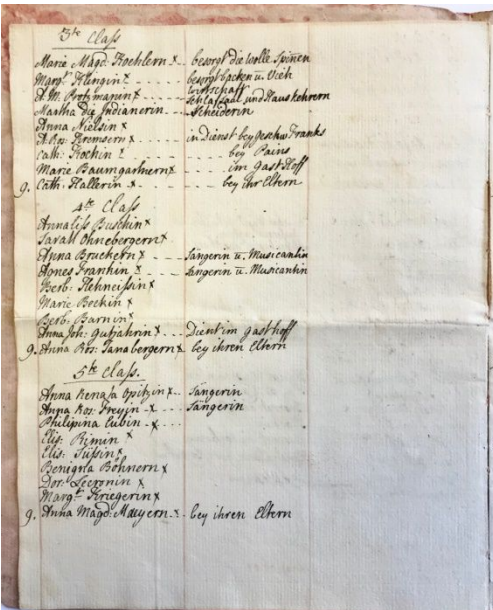 3te Class
Marie Magd: Koehlern x.. besorgt die wolle Spinnen
Margt Klingin x - - - - besorgt backen u. Vieh
wirthschaft
A. M. Rotzmanin x - - - - Schlafsaal und Haus kehrern
Martha die Indianerin - - - Schneiderin
Anna Nielsin x
A. Ros: Kremsern x - - - - in Dienst bey Geschw Franks
Cath: Kochin x - - - - bey Pains
Marie Baumgartnern x - - - im Gast Hoff
9. Cath: Hallerin x - - - - bey ihr Eltern
4te Class
Annaliss Buschin x
Sarah Ohnebergern x
Anna Bruckern x - - Sängerin u. Musicantin
Agnes Frankin x - - - Sängerin u. Musicantin
Berb: Hehneissin x
Marie Beckin x
Berb: Barnin x
Anna Joh: Gutjahrin x - - - Dient im gasthoff
9. Anna Ros: Tanabergern x bey ihren Eltern
5te Class.
Anna Renata Opitzin x - - Sängerin
Anna Ros: Freyin - x - - - Sängerin
Philipina Eubin - x - - -
Elis: Rimin x
Elis: Süssin x
Benigna Böhnern x
Dor: Lecronin x
Margt Kriegerin x
9. Anna Magd: Mayern - x - bey ihren Eltern